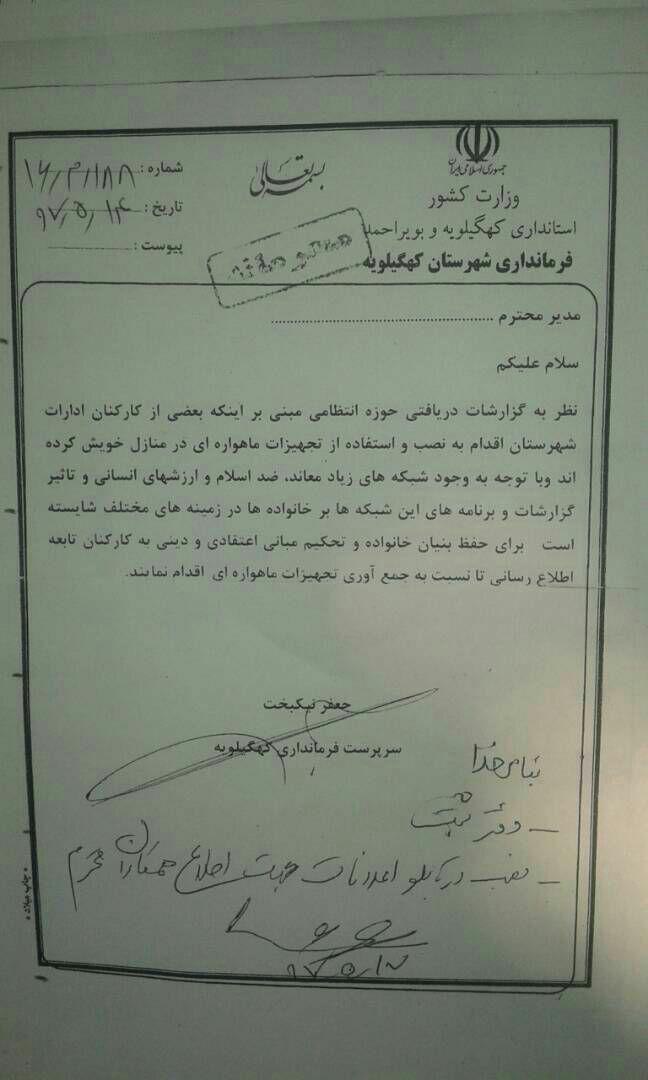 بسمه تعالی
جمهوری اسلامی ایران
وزارت کشور
استانداری کهگیلویه و بویراحمد
فرمانداری شهرستان کهگیلویه
شماره : ۱۶٫م٫۱۸۸
تاریخ : ۹۷٫۵٫۱۴
پیوست :
مدیر محترم ................................................
سلام علیکم
نظر به گزارشات دریافتی حوزه انتظامی مبنی بر اینکه بعضی از کارکنان ادارات
شهرستان اقدام به نصب و استفاده از تجهیزات ماهواره ای در منازل خویش کرده
اند وبا توجه به وجود شبکه های زیاد معاند، ضد اسلام و ارزشهای انسانی و تاثیر
گزارشات و برنامه های این شبکه ها بر خانواده ها در زمینه های مختلف شایسته
است برای حفظ بنیان خانواده و تحکیم مبانی اعتقادی و دینی به کارکنان تابعه
اطلاع رسانی تا نسبت به جمع آوری تجهیزات ماهواره ای اقدام نمایند.
جعفر نیکبخت
سرپرست فرمانداری کهگیلویه
بنام خدا
– دفتر ثبت
– نصب در تابلو اعلانات جهت اطلاع همکاران محترم
چاپ میلاد